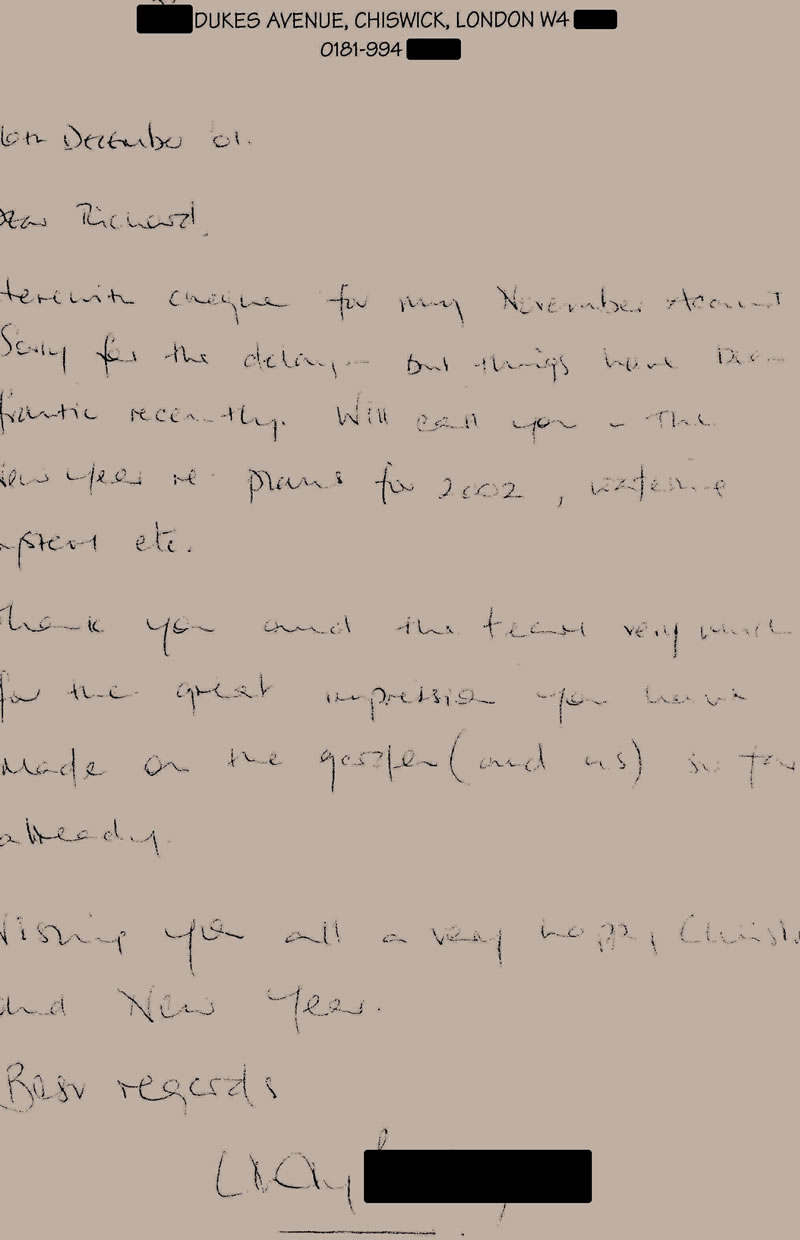 DUKES AVENUE, CHISWICK, LONDON W4
0181-994
December 01.
Dear Richard,
Herewith cheque for my November Account
Sorry for the delay - but things have
frantic recently. Will call you in the
New Year re plans for 2002, watering
system etc.
Thank you and the team very much
for the great impression you have
made on the garden (and us) so far
already.
Wishing you all a very happy
and New Year.
Best regards